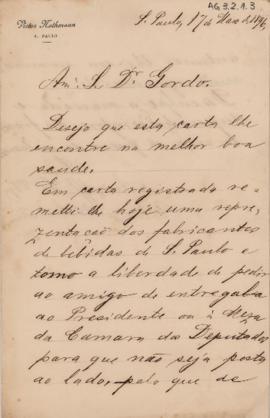 AG.3.2.1.3
Victor Nothmann
S. PAULO
S. Paulo, 17 de Maio de 1896
Am.º Sr. Dr. Gordo.
Desejo que esta carta lhe
encontre na melhor boa
saude.
Em carta registrada re-
metti lhe hoje uma repre-
zentação dos fabricantes
de bebidas de S. Paulo e
tomo a liberdade de pedir
ao amigo de entregal-a
ao Presidente ou à Meza
da Camara dos Deputados
para que não seja posta
ao lado, pelo que de